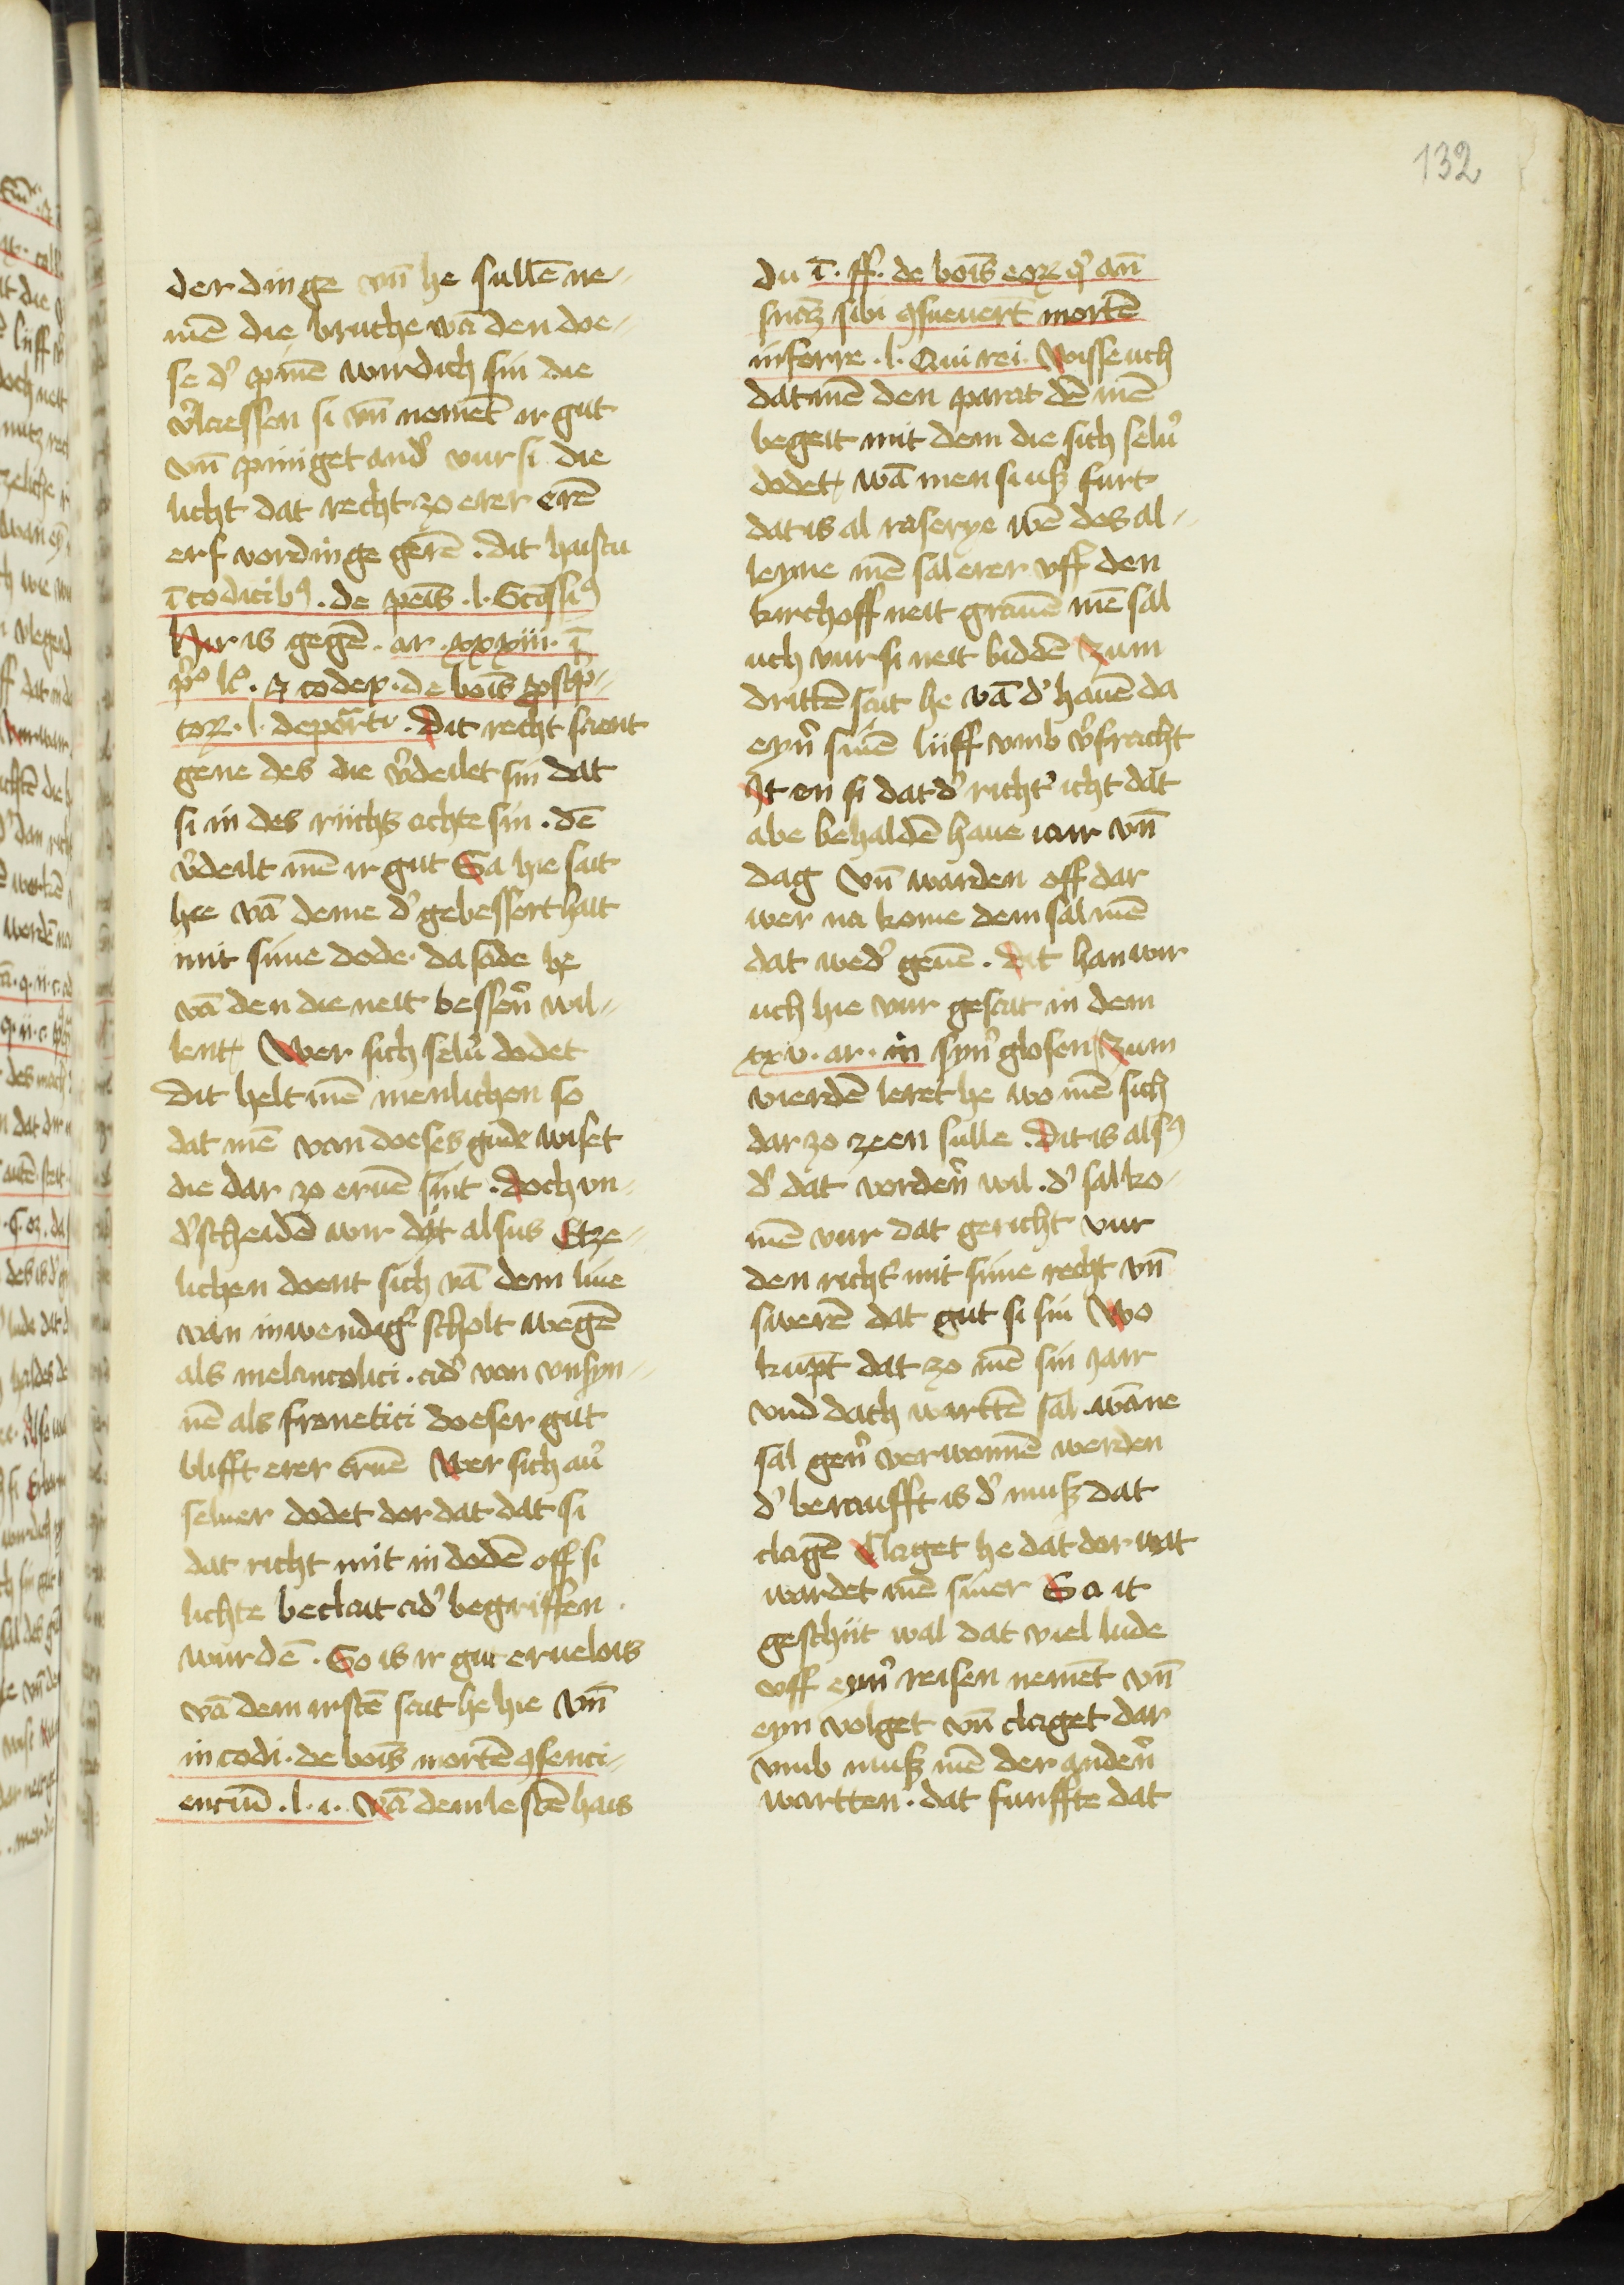 132
der dinge vn̄ he sullē ne-
mē die bruche wā den doe-
se d' pinē wirdich sin die
v'laessen si vn̄ nemēt ir gut
vn̄ piniget and' vur si die
licht dat recht zo erer erē
erf vordinge gerē . dit haistu
ī codicibꝰ . de peīs . l.
Hir is gegē . ar . xxxiii . ī
p'º l'º . ꝫ codex . de boīs
toꝝ . l . deporati . Dit recht saent
gene des die v'deilet sin dat
si in des riichs achte sin . dē
v'deilt mē ir gut Sa hie sait
hee vā deme d' gebessert hait
mit sime dode . da sade he
vā den die neit bessern̄ wil-
lent Wer sich selu' dodet
Dit helt mē menlichen so
dat mē van doeses gude wiset
die dar zo eruē sint . Doch vn-
d'scheidē wir dyt alsus Etze-
lichen doent sich vā dem liue
van inwendig' scholt wegē
als melancolici . ad' van vnsyn-
nē als frenetici doeser gut
blifft erer eruē Wer sich au'
seluer dodet dor dat dat si
dat richt mit in dodē off si
lichte beclait ad' begriffen .
wurdē . So is ir gut eruelois
vā dem irstē sait he hie Vn̄
in codi . de boīs mortē ꝯsenci-
enciū . l . i . Vā dem lestē hais
du ī . ff . de boīs eoꝝ q' an̄
snāꝫ sibi ꝯsueuerт̄ mortē
inferre . l . Qui rei . Wisse uch
dat mē den parat dē mē
begeit mit dem die sich selu'
dodet wā men si uß furt
dat is al raserye wē des al-
leyne mē sal erer vff den
kirchoff neit grauē mē sal
uch vur si neit biddē Zum
drittē sait he vā d' hauē da
eyn' sinē liiff vmb v'fracht
It en si dat d' richt' icht dat
abe behaldē haue iair vn̄
dag vn̄ warden off dar
wer na kome dem sal mē
dat wed' geuē . dit han wir
uch hie vur gesait in dem
xxv . ar . in syn' glosen Zum
vierdē leret he wo mē sich
dar zo zeen sulle . Dit is alsꝰ
d' dat vordern̄ wil . d' sal ko-
mē vur dat gericht vur
den richt' mit sime recht vn̄
swerē dat gut si sin Wo
kupt dat zo mē sin jair
vnd dach wartē sal . wāne
sal gen' verwonnē werden
d' beraufft is d' muß dat
clagē Claget he dat dor wat
wardet mē siner Sa it
geschiit wal dat viel lude
vff eym' reisen nemēt vn̄
eyn volget vn̄ claget dar
vmb muß mē der andern̄
wartten . dat funffte dat